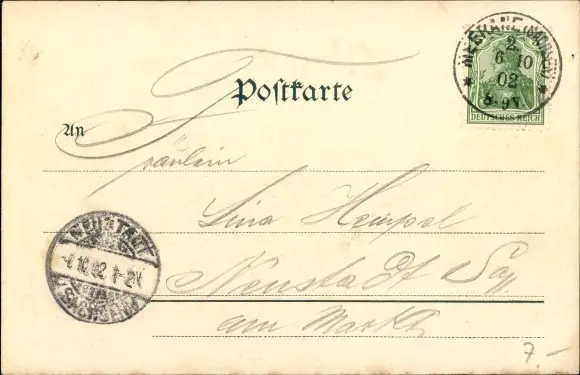 MEERANE (SACHSEN)
2
6 10
02
8-9V.
DEUTSCHES REICH
Postkarte
An
Fräulein
Lina Hempel
Neustadt Sa
am Markt
NEUSTADT
6.10.02 1-2N
(SACHSEN)
7.-